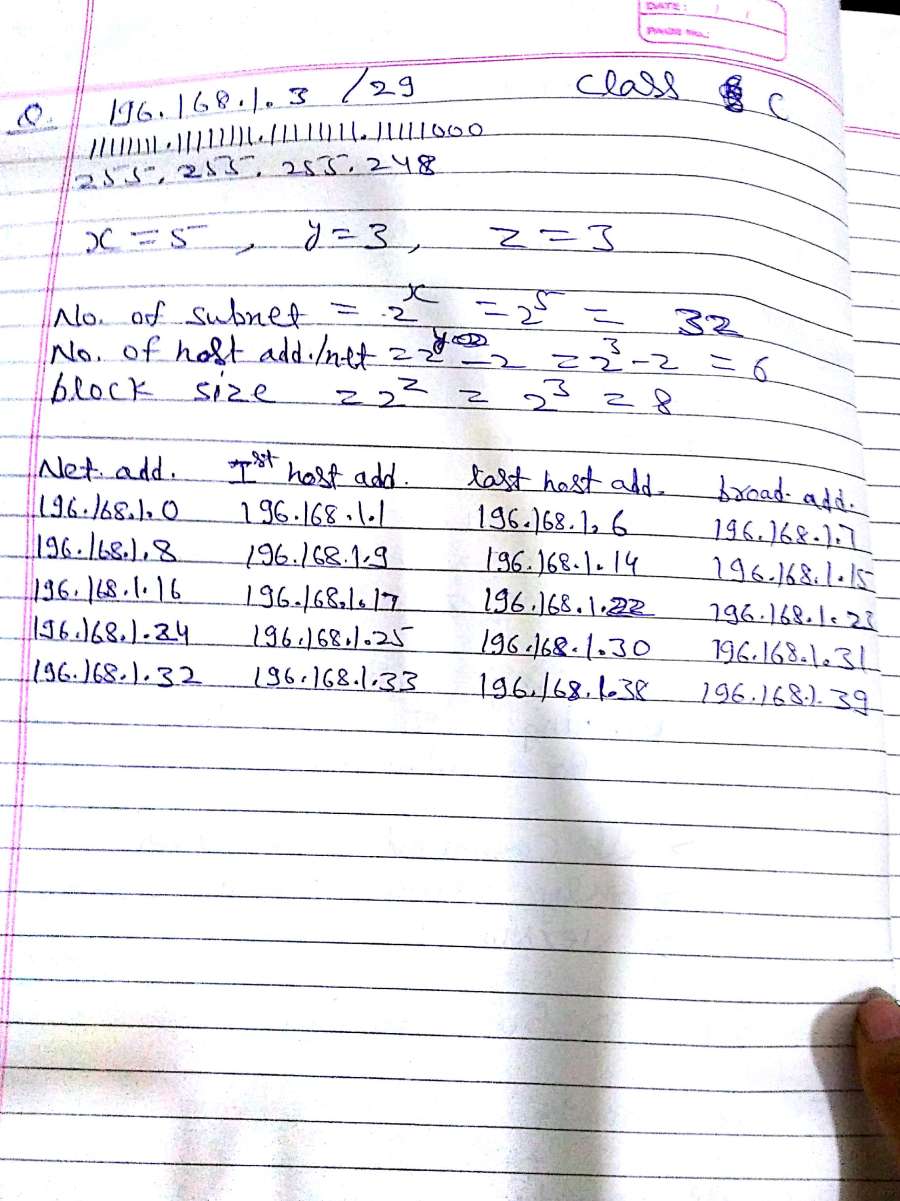 DATE: / /
PAGE No.:
Q. 196.168.1.3 /29 Class C
11111111.11111111.11111111.11111000
255.255.255.248
x = 5, y = 3, z = 3
No. of subnet = 2^x = 2^5 = 32
No. of host add./net = 2^y - 2 = 2^3 - 2 = 6
block size = 2^z = 2^3 = 8
Net. add. Ist host add. last host add. broad. add.
196.168.1.0 196.168.1.1 196.168.1.6 196.168.1.7
196.168.1.8 196.168.1.9 196.168.1.14 196.168.1.15
196.168.1.16 196.168.1.17 196.168.1.22 196.168.1.23
196.168.1.24 196.168.1.25 196.168.1.30 196.168.1.31
196.168.1.32 196.168.1.33 196.168.1.38 196.168.1.39